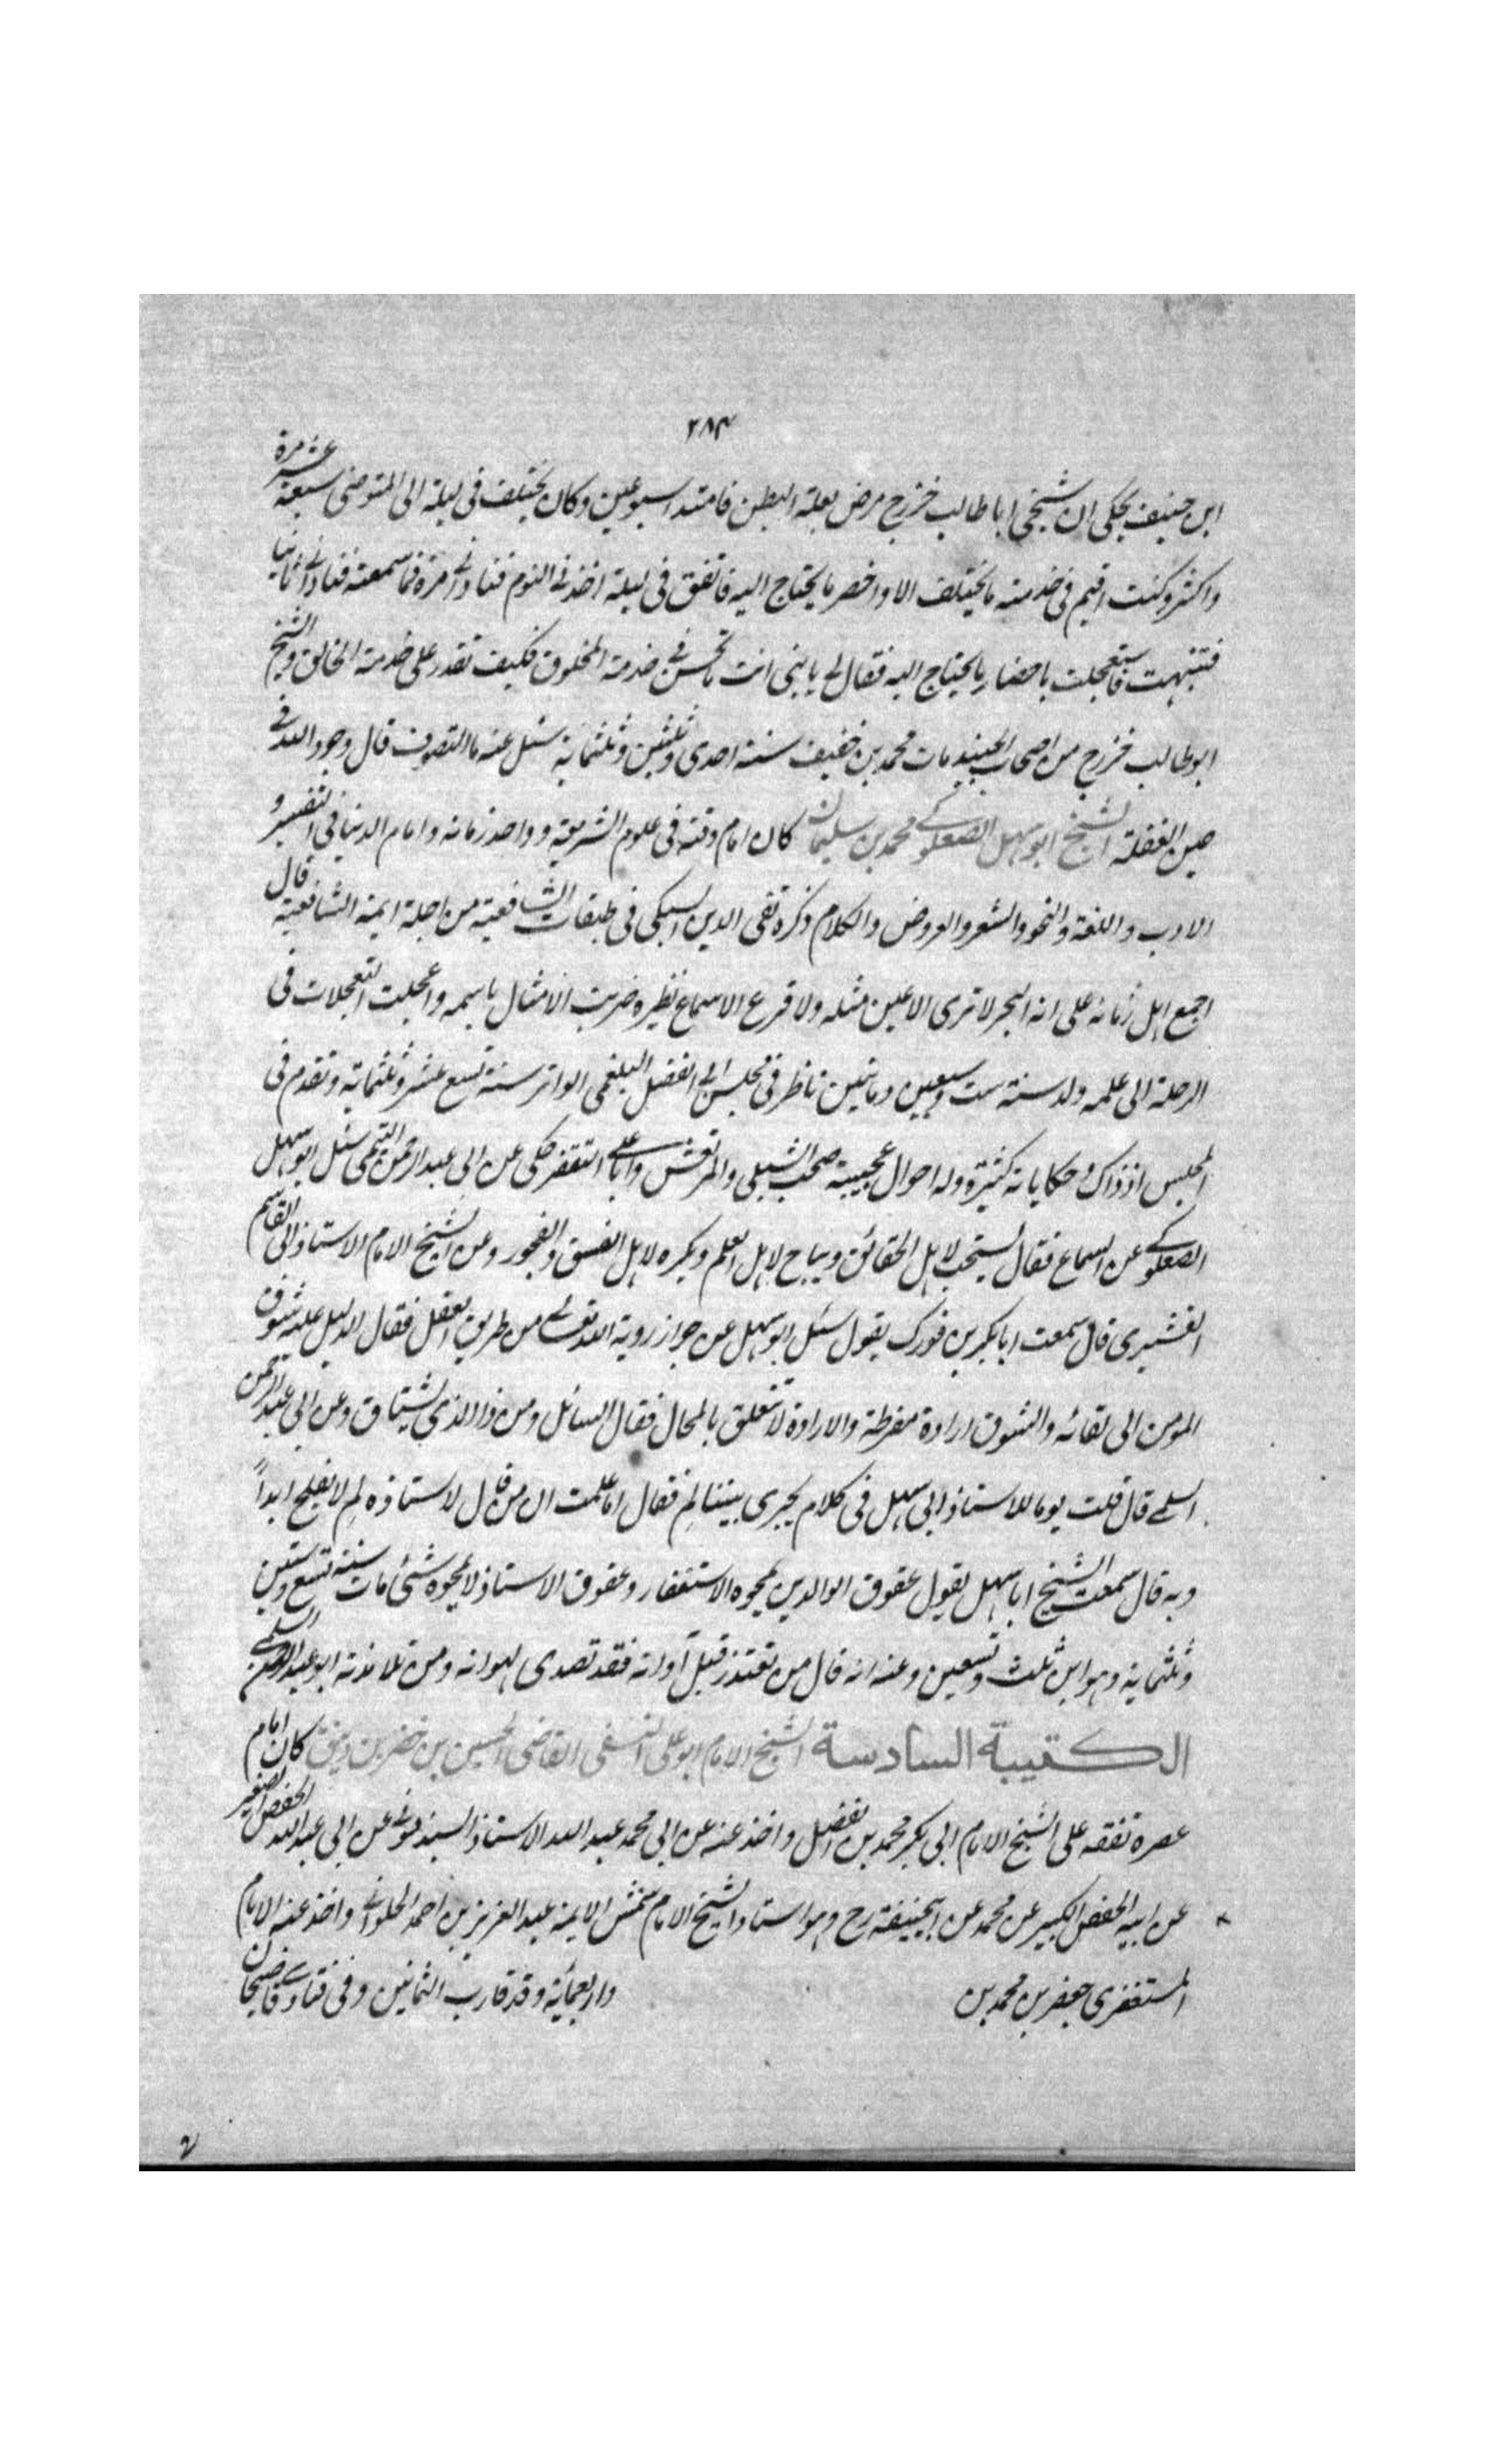 ٢٨٣
ابن حنيف يحكى ان شيخى ابا طالب خزرج مرض بعلة البطن فامتد اسبوعين وكان يختلف فى ليلة الى المتوضى سبعة عشر مرة
واكثر وكنت اقيم فى خدمته ما يختلف الا واحضر ما يحتاج اليه فاتفق فى ليلة اخذنى النوم فنادانى مرة فما سمعته فنادانى ثانيا
فتنبهت فاستعجلت باحضار ما يحتاج اليه فقال لى يا بنى انت ما تحسن فى خدمة المخلوق فكيف تقدر على خدمة الخالق والشيخ
ابو طالب خزرج من اصحاب الجنيد مات محمد بن خفيف سنة احدى وثلثين وثلثماية سئل عنه ما التصوف قال وجود الله فى
حين الغفلة الشيخ ابو سهل الصعلوكى محمد بن سليمان كان امام وقته فى علوم الشريعة و واحد زمانه وامام الدنيا فى التفسير و
الادب واللغة والنحو والشعر والعروض والكلام ذكره تقى الدين السبكى فى طبقات الشافعية من اجلة ايمة الشافعية قال
اجمع اهل زمانه على انه البحر لا ترى الاعين مثله ولا قرع الاسماع نظيره ضربت الامثال باسمه واعجلت التعجلات فى
الرحلة الى علمه ولد سنة ست وسبعين ومائتين ناظر فى مجلس ابى الفضل البلغمى الوانر سنة تسع عشر وثلثماية وتقدم فى
المجلس اذ ذاك وحكاياته كثيرة وله احوال عجيبة صحب الشبلى والمرتعش وابا على الثقفى حكى عن ابى عبد الرحمن التيمى سئل ابو سهل
الصعلوكى عن السماع فقال يستحب لاهل الحقائق ويباح لاهل العلم ويكره لاهل الفسق والفجور وعن الشيخ الامام الاستاذ ابى القاسم
القشيرى قال سمعت ابا بكر بن فورك يقول سئل ابو سهل عن جواز روية الله تعالى من طريق العقل فقال الدليل عليه شوق
المومن الى لقائه والشوق ارادة مفرطة والارادة لا تتعلق بالمحال فقال السائل ومن ذا الذى يشتاق وعن ابى عبد الرحمن
السلمى قال قلت يوما للاستاذ ابى سهل فى كلام يجرى بيننا لم فقال اما علمت ان من قال لاستاذه لم لا يفلح ابداً
وبه قال سمعت الشيخ ابا سهل يقول عقوق الوالدين يمحوه الاستغفار وعقوق الاستاذ لا يمحوه شئ مات سنة تسع وستين
وثلثماية وهو ابن ثلث وتسعين وعنه انه قال من تصدر قبل آوانه فقد تصدى لهوانه ومن تلامذته ابو عبد الرحمن السلمى
الكتيبة السادسة الشيخ الامام ابو على النسفى القاضى الحسين بن خضر بن دنيف كان امام
عصره تفقه على الشيخ الامام ابى بكر محمد بن الفضل واخذ عنه عن ابى محمد عبد الله الاستاذ السبذمونى عن ابى عبد الله الحفص الصغير
عن ابيه الحفص الكبير عن محمد عن ابيحنيفة رح وهو استاد الشيخ الامام شمس الايمة عبد العزيز بن احمد الحلوانى واخذ عنه الامام
المستغفرى جعفر بن محمد بن واربعمائة وقد قارب الثمانين وفى فتاوى قاضيخان